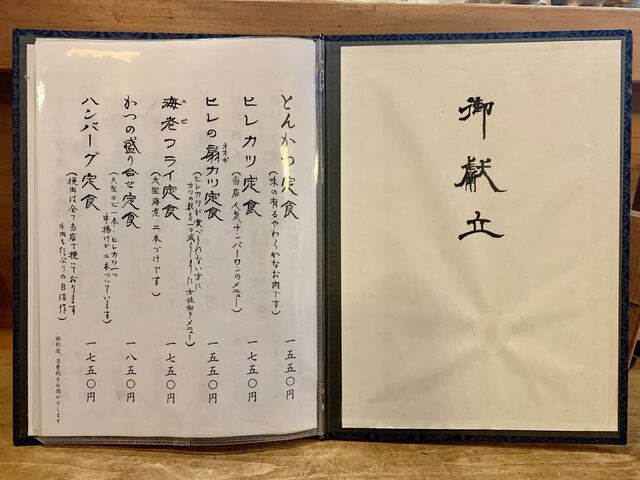 御献立
とんかつ定食
(味の有るやわらかなお肉です)
一五五〇円
ヒレカツ定食
(当店人気ナンバーワンのメニュー)
一七五〇円
ヒレの扇カツ定食
オオギ
(ヒレカツが食べきれない方に
カツの数を一つ減らしました女性向きメニュー)
一五五〇円
海老フライ定食
エビ
(大型海老二本づけです)
一七五〇円
かつの盛り合せ定食
(大型エビ一本・ヒレカツ一つ
串揚げが二本ついています)
一八五〇円
ハンバーグ定食
(挽肉は全て当店で挽いております
牛肉もたっぷりの自信作)
一七五〇円
御別途、消費税をお預かりします